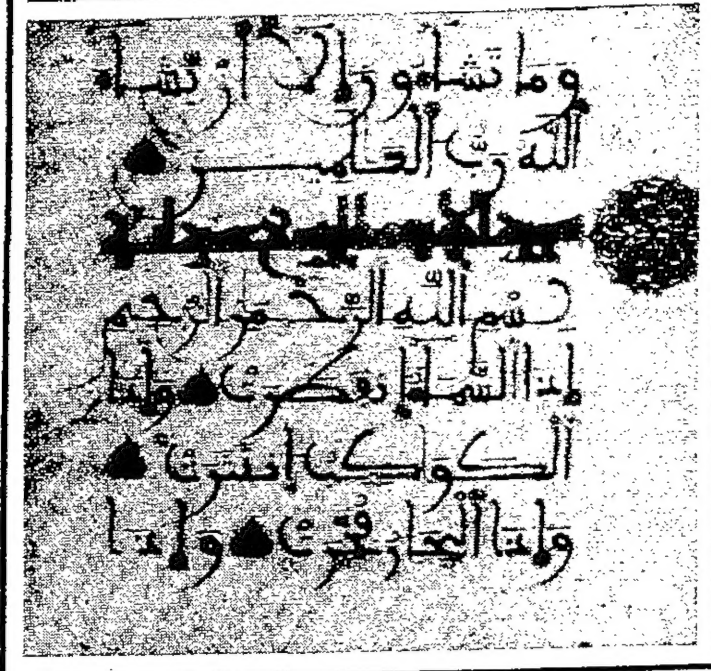 وَمَا تَشَاءُونَ إِلَّا أَنْ يَّشَاءَ
اَللَّهُ رَبُّ اَلْعَٰلَمِينَ
بِسْمِ اللَّهِ الرَّحْمَٰنِ الرَّحِيمِ
إِذَا اَلسَّمَاءُ اُنفَطَرَتْ وَإِذَا
اَلْكَوَاكِبُ اُنتَثَرَتْ
وَإِذَا اَلْبِحَارُ فُجِّرَتْ وَإِذَا